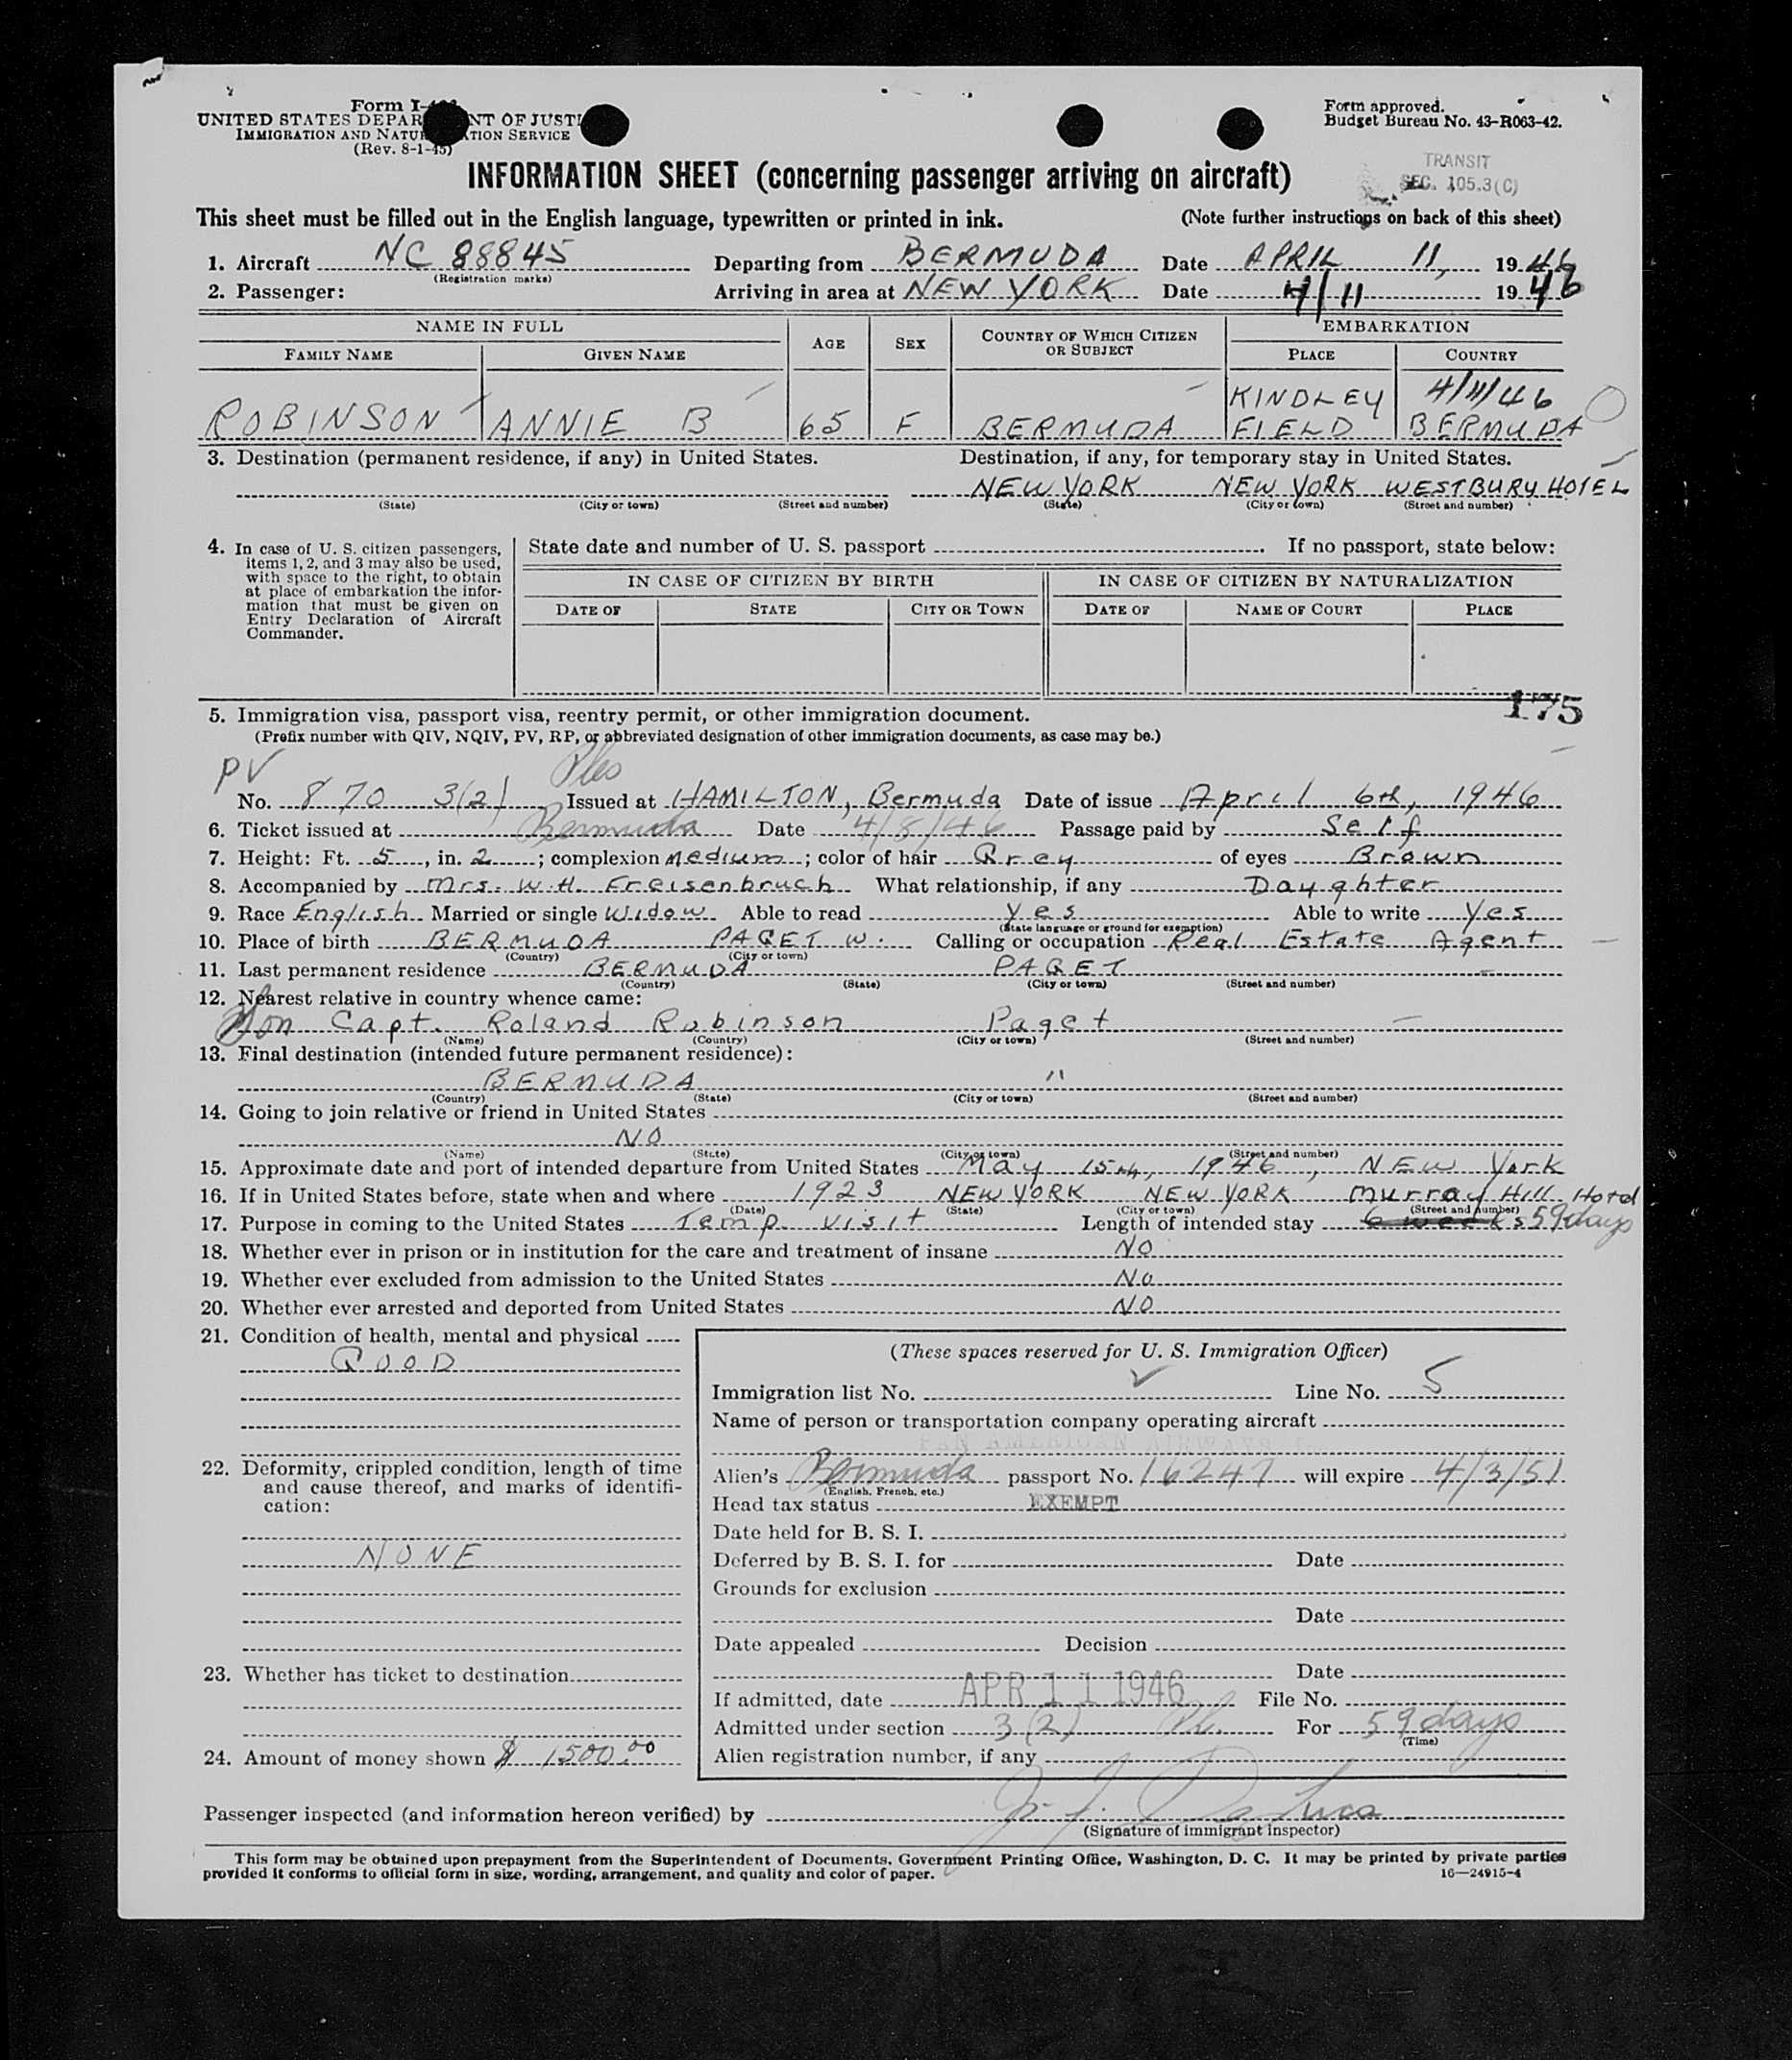 Form I-
UNITED STATES DEPAR NT OF JUSTI
IMMIGRATION AND NATU ATION SERVICE
(Rev. 8-1-45)
Form approved.
Budget Bureau No. 43-R063-42.
INFORMATION SHEET (concerning passenger arriving on aircraft)
TRANSIT
SEC. 105.3(C)
This sheet must be filled out in the English language, typewritten or printed in ink. (Note further instructions on back of this sheet)
1. Aircraft NC 88845 Departing from BERMUDA Date APRIL 11, 1946
(Registration marks)
2. Passenger: Arriving in area at NEW YORK Date 4/11 1946
NAME IN FULL AGE SEX COUNTRY OF WHICH CITIZEN OR SUBJECT EMBARKATION
FAMILY NAME GIVEN NAME PLACE COUNTRY
KINDLEY 4/11/46
ROBINSON ANNIE B 65 F BERMUDA FIELD BERMUDA
3. Destination (permanent residence, if any) in United States. Destination, if any, for temporary stay in United States.
NEW YORK NEW YORK WESTBURY HOTEL
(State) (City or town) (Street and number) (State) (City or town) (Street and number)
4. In case of U. S. citizen passengers,
items 1, 2, and 3 may also be used,
with space to the right, to obtain
at place of embarkation the infor-
mation that must be given on
Entry Declaration of Aircraft
Commander.
State date and number of U. S. passport . If no passport, state below:
IN CASE OF CITIZEN BY BIRTH IN CASE OF CITIZEN BY NATURALIZATION
DATE OF STATE CITY OR TOWN DATE OF NAME OF COURT PLACE
175
5. Immigration visa, passport visa, reentry permit, or other immigration document.
(Prefix number with QIV, NQIV, PV, RP, or abbreviated designation of other immigration documents, as case may be.)
PV
No. 870 3(2) Issued at HAMILTON, Bermuda Date of issue April 6th, 1946
6. Ticket issued at Bermuda Date 4/8/46 Passage paid by Self
7. Height: Ft. 5, in. 2; complexion medium; color of hair Grey of eyes Brown
8. Accompanied by Mrs. W. H. Freisenbruch What relationship, if any Daughter
9. Race English Married or single Widow Able to read yes Able to write Yes
(State language or ground for exemption)
10. Place of birth BERMUDA PAGET W. Calling or occupation Real Estate Agent
(Country) (City or town)
11. Last permanent residence BERMUDA PAGET –
(Country) (State) (City or town) (Street and number)
12. Nearest relative in country whence came:
Son Capt. Roland Robinson Paget —
(Name) (Country) (City or town) (Street and number)
13. Final destination (intended future permanent residence):
BERMUDA "
(Country) (State) (City or town) (Street and number)
14. Going to join relative or friend in United States
NO
(Name) (State) (City or town) (Street and number)
15. Approximate date and port of intended departure from United States May 15th, 1946, NEW York
16. If in United States before, state when and where 1923 NEW YORK NEW YORK Murray Hill Hotel
(Date) (State) (City or town) (Street and number)
17. Purpose in coming to the United States Temp visit Length of intended stay 6 weeks 59 days
18. Whether ever in prison or in institution for the care and treatment of insane NO
19. Whether ever excluded from admission to the United States No
20. Whether ever arrested and deported from United States NO
21. Condition of health, mental and physical
GOOD
22. Deformity, crippled condition, length of time
and cause thereof, and marks of identifi-
cation:
NONE
23. Whether has ticket to destination
24. Amount of money shown $ 1500.00
(These spaces reserved for U. S. Immigration Officer)
Immigration list No. Line No. 5
Name of person or transportation company operating aircraft
PAN AMERICAN AIRWAYS
Alien's Bermuda passport No. 16247 will expire 4/3/51
(English, French, etc.)
Head tax status EXEMPT
Date held for B. S. I.
Deferred by B. S. I. for Date
Grounds for exclusion
Date
Date appealed Decision
Date
If admitted, date APR 11 1946 File No.
Admitted under section 3(2) For 59 days
(Time)
Alien registration number, if any
Passenger inspected (and information hereon verified) by
(Signature of immigrant inspector)
This form may be obtained upon prepayment from the Superintendent of Documents, Government Printing Office, Washington, D. C. It may be printed by private parties
provided it conforms to official form in size, wording, arrangement, and quality and color of paper. 16—24915-4